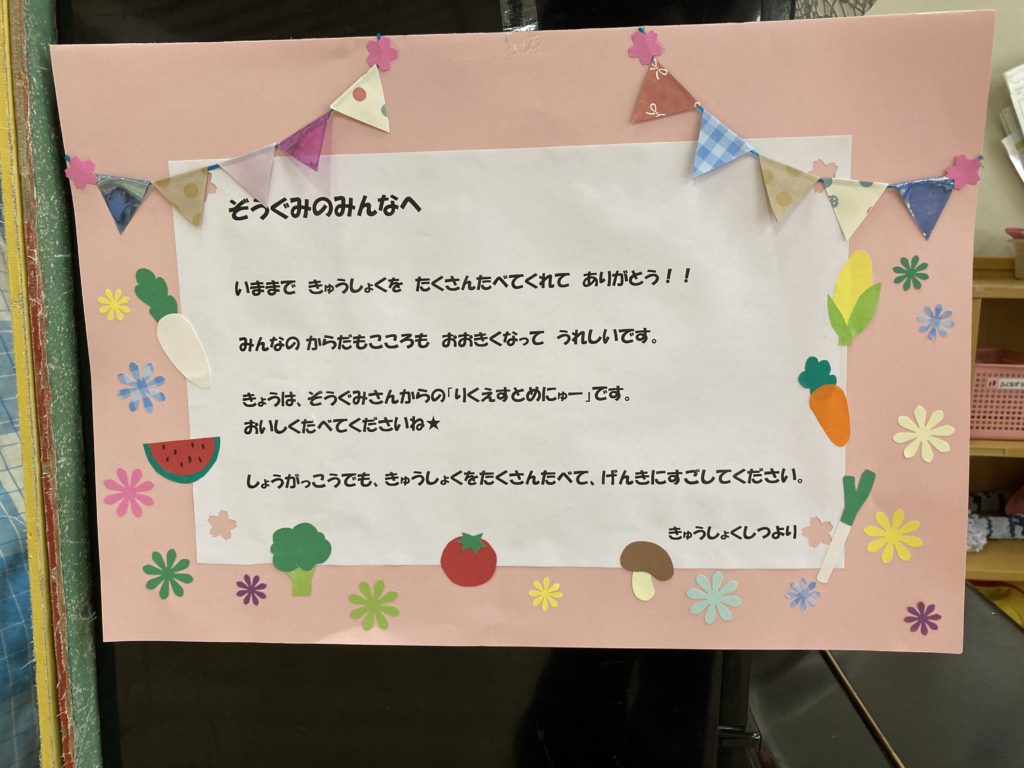 ぞうぐみのみんなへ
いままで きゅうしょくを たくさんたべてくれて ありがとう！！
みんなの からだもこころも おおきくなって うれしいです。
きょうは、ぞうぐみさんからの「りくえすとめにゅー」です。
おいしくたべてくださいね★
しょうがっこうでも、きゅうしょくをたくさんたべて、げんきにすごしてください。
きゅうしょくしつより